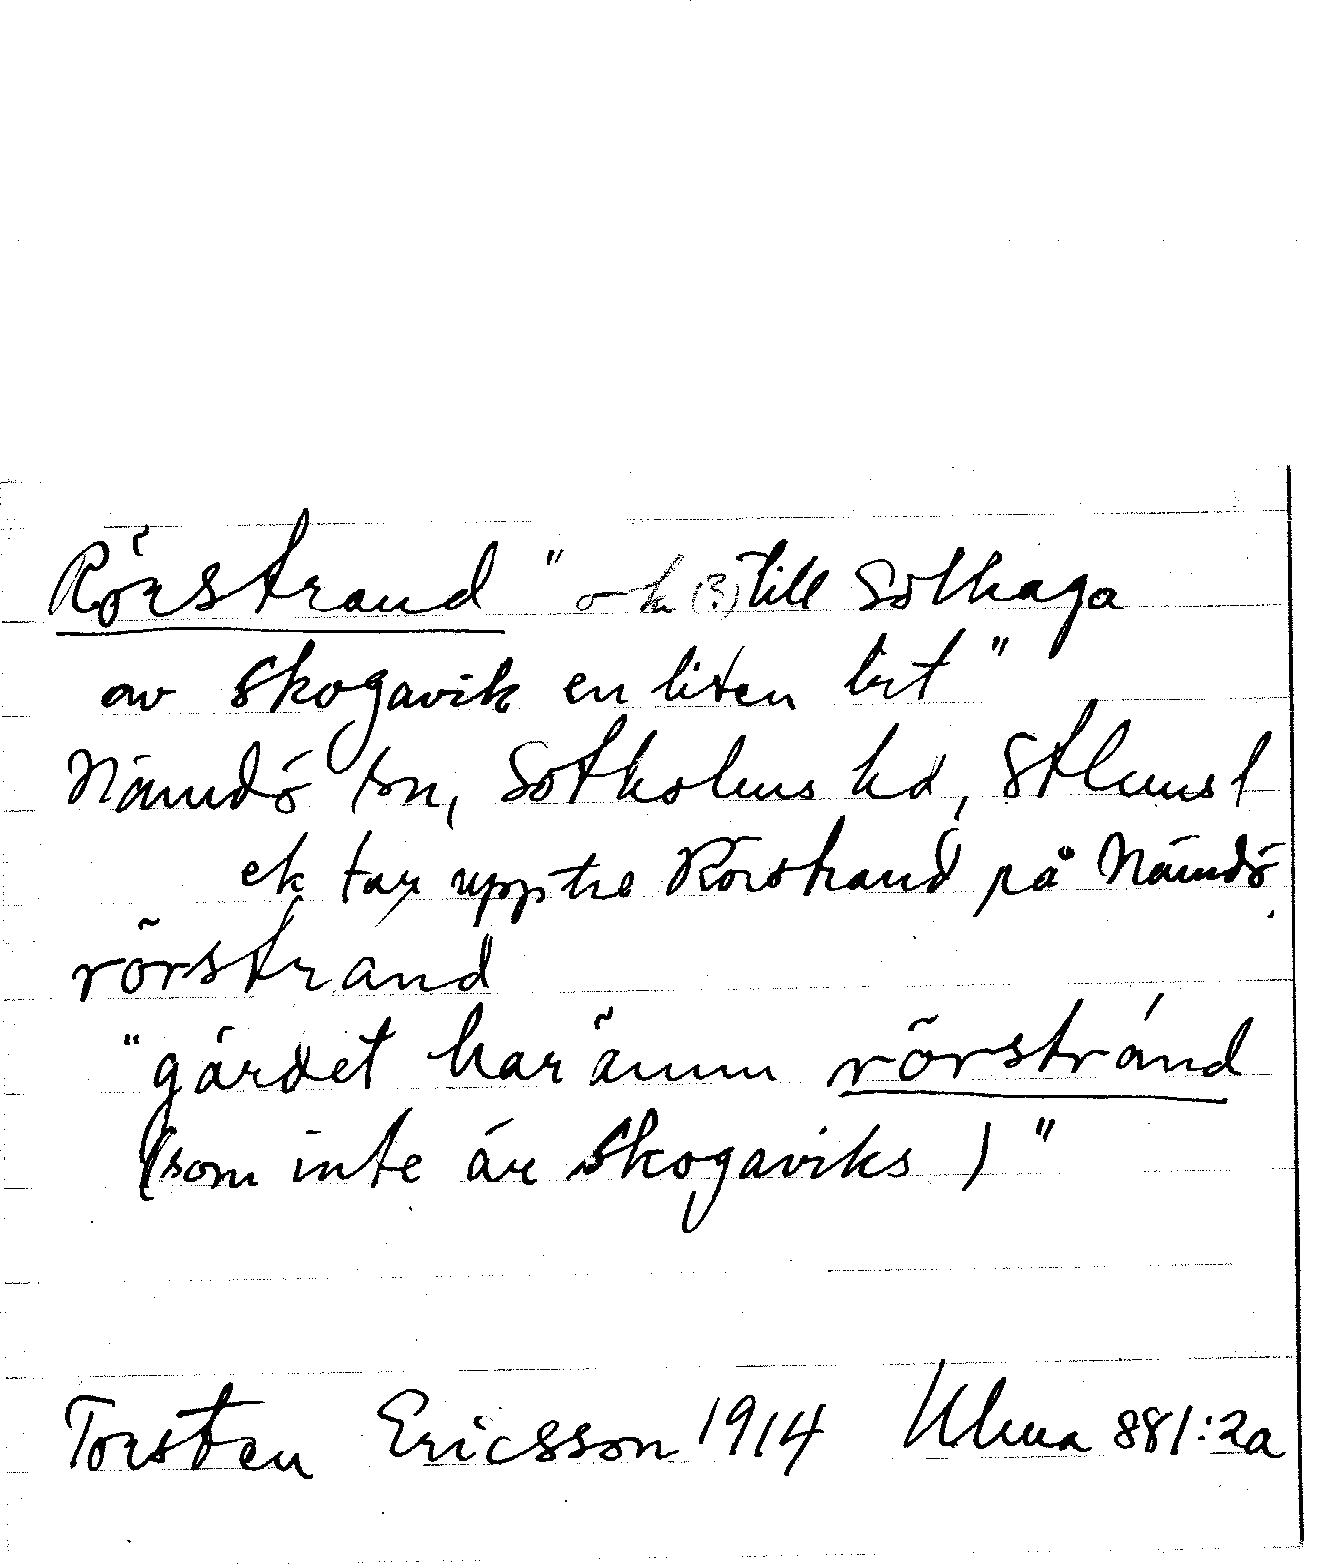 Rörstrand " o k (?) till Solhaga
av Skogavik en liten bit"
Nämdö sn, Sotholms hd, Sthlms l
ek tar upp tre Rörstrand på Nämdö.
rörstrand
"gärdet har ännu rörstránd
(som inte är Skogaviks)"
Torsten Ericsson 1914 Ulma 881:2a